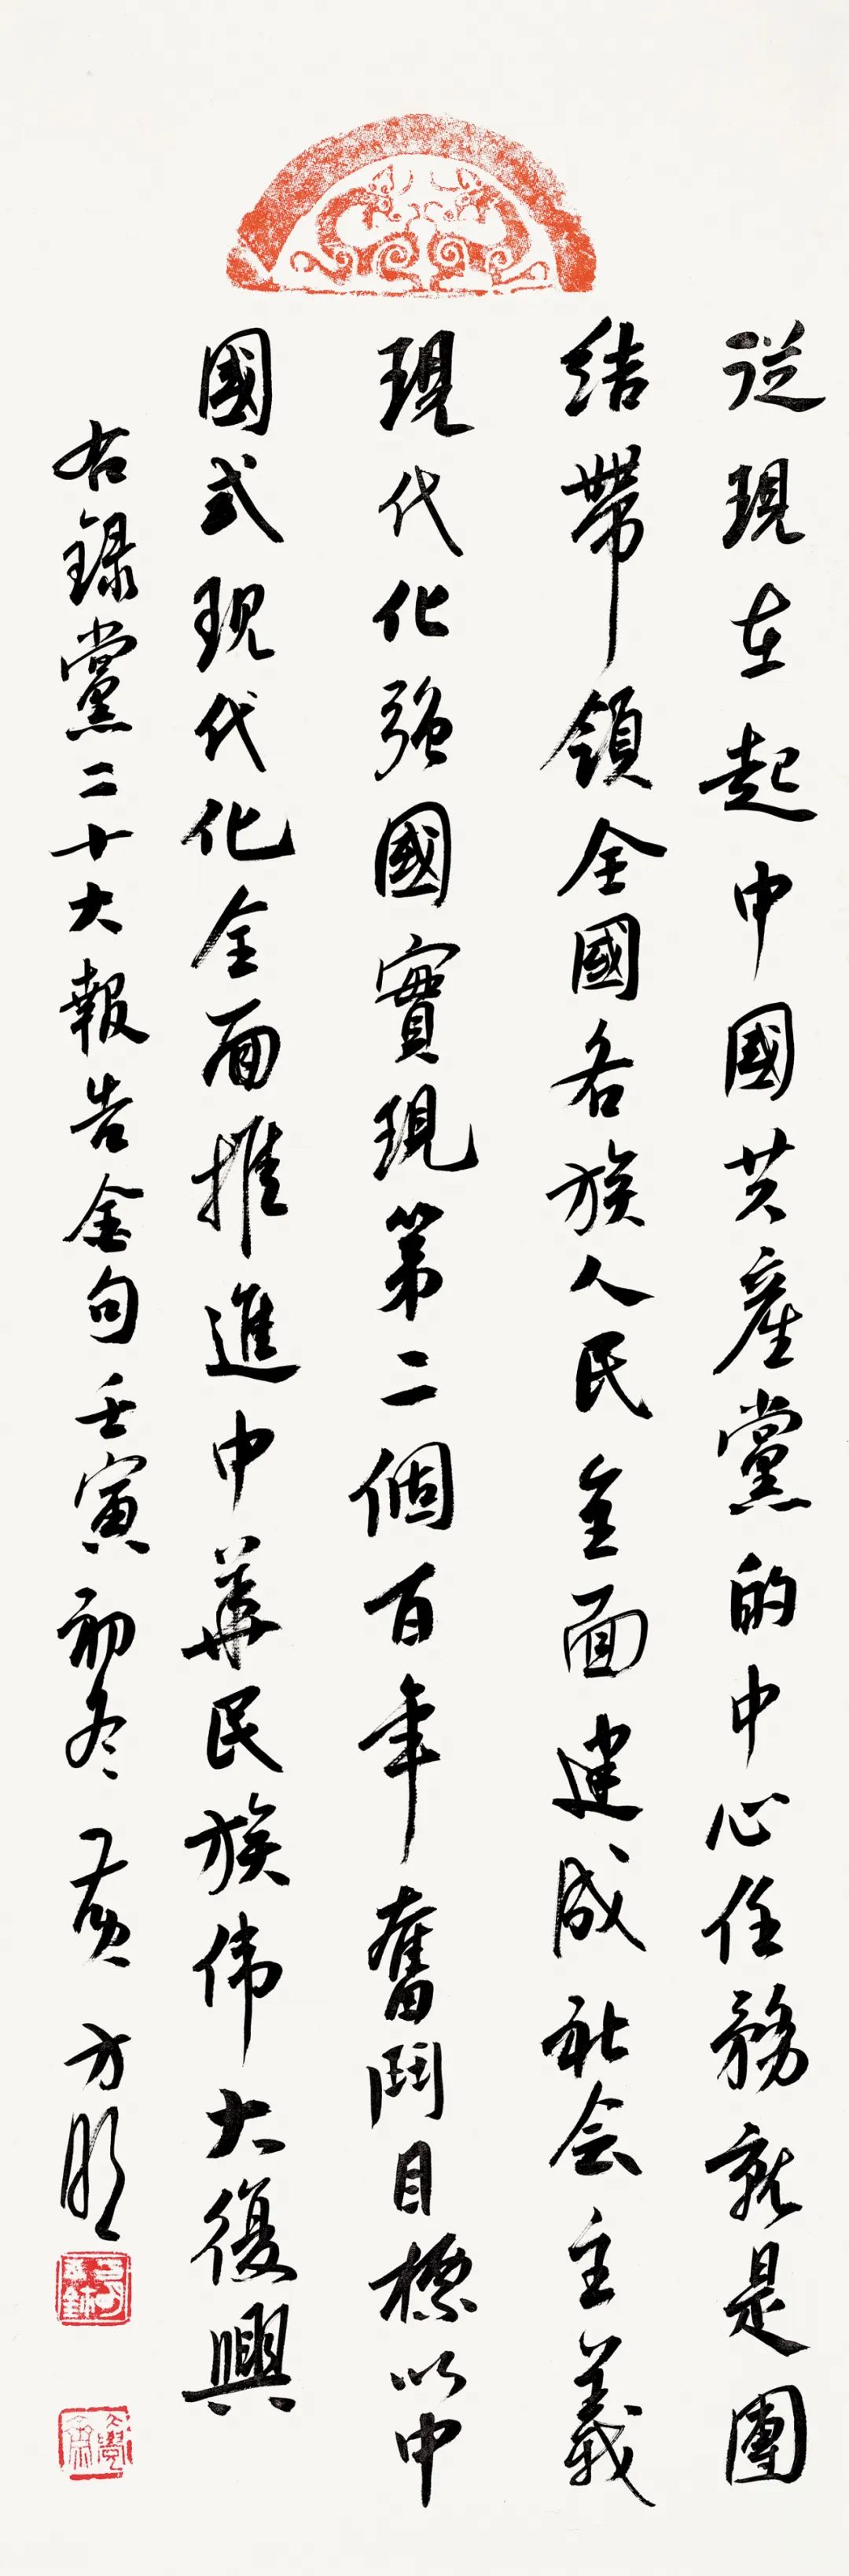 従現在起中國共產黨的中心任務就是團
结帶領全國各族人民全面建成社会主義
現代化强國實現第二個百年奮鬥目標以中
國式現代化全面推進中華民族伟大復興
右録黨二十大報告金句壬寅初冬黄方明